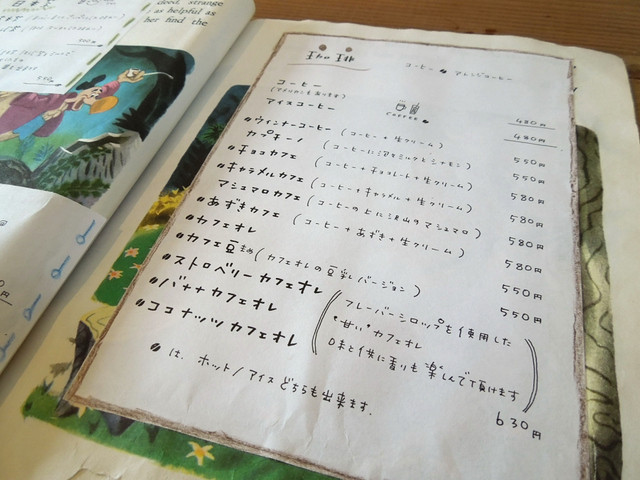 deed, strange
as helpful as
her find the
珈琲
コーヒー アレンジコーヒー
コーヒー
(アメリカンもあります)
COFFEE
480円
アイスコーヒー 480円
ウィンナーコーヒー (コーヒー + 生クリーム) 550円
カプチーノ (コーヒーに泡のミルクとシナモン) 550円
チョコカフェ (コーヒー + チョコレート + 生クリーム) 580円
キャラメルカフェ (コーヒー + キャラメル + 生クリーム) 580円
マシュマロカフェ (コーヒーの上に沢山のマシュマロ) 580円
あずきカフェ (コーヒー + あずき + 生クリーム) 580円
カフェオレ 550円
カフェ豆乳 (カフェオレの豆乳バージョン) 550円
ストロベリーカフェオレ
バナナカフェオレ
ココナッツカフェオレ
(フレーバーシロップを使用した
"甘い"カフェオレ
味と供に香りも楽しんで頂けます)
630円
は、ホット/アイスどちらも出来ます.